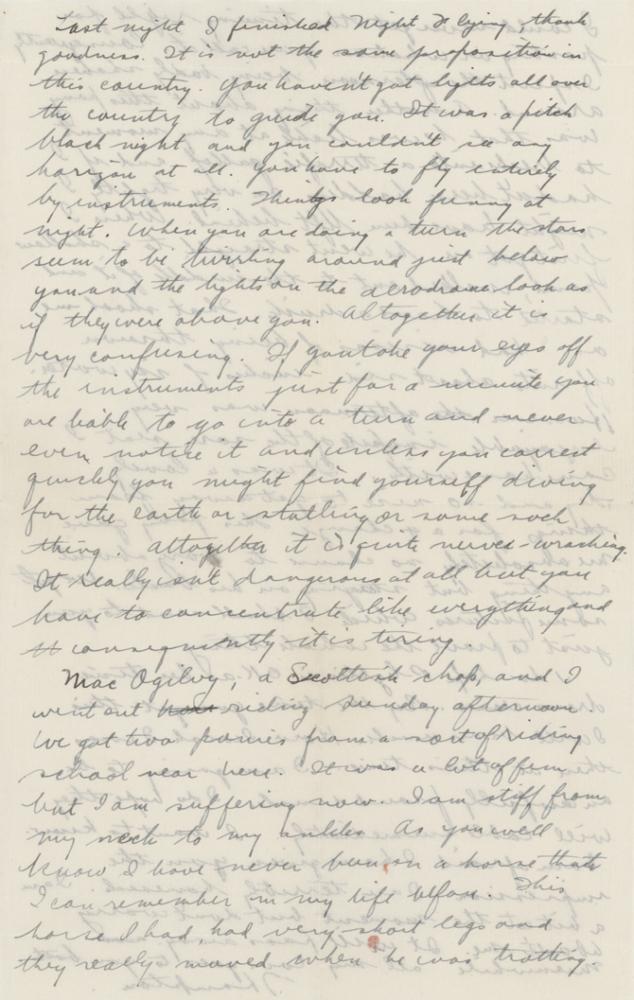 Last night I finished Night Flying, thank
goodness. It is not the same proposition in
this country. You haven't got lights all over
the country to guide you. It was a pitch
black night and you couldn't see any
horizon at all. You have to fly entirely
by instruments. Things look funny at
night. When you are doing a turn the stars
seem to be twirling around just below
you and the lights on the aerodrome look as
if they were above you. Altogether it is
very confusing. If you take your eyes off
the instruments just for a minute you
are liable to go into a turn and never
even notice it and unless you correct
quickly you might find yourself diving
for the earth or stalling or some such
thing. Altogether it is quite nerve-wracking.
It really isn't dangerous at all but you
have to concentrate like everything and
consequently it is tiring.
Mac Ogilvy, a Scottish chap, and I
went out riding Sunday afternoon.
We got two ponies from a sort of riding
school near here. It was a lot of fun
but I am suffering now. I am stiff from
my neck to my ankles. As you well
know I have never been on a horse that
I can remember in my life before. This
horse I had, had very short legs and
they really moved when he was trotting.